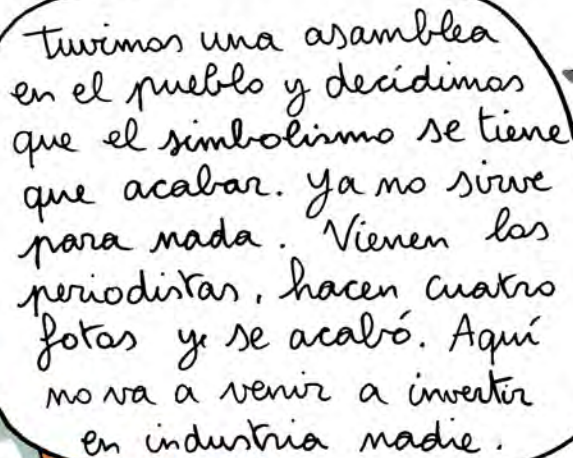 tuvimos una asamblea
en el pueblo y decidimos
que el simbolismo se tiene
que acabar. ya no sirve
para nada. Vienen los
periodistas, hacen cuatro
fotos y se acabó. Aquí
no va a venir a invertir
en industria nadie.